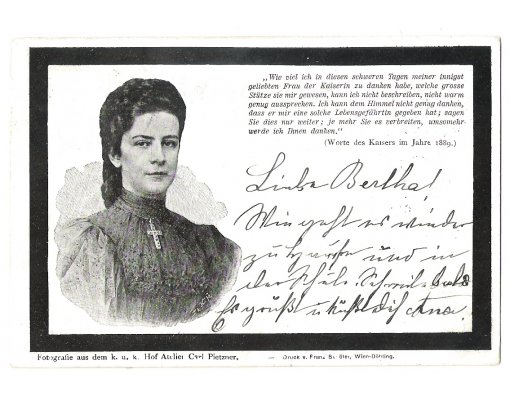 „Wie viel ich in diesen schweren Tagen meiner innigst
geliebten Frau der Kaiserin zu danken habe, welche grosse
Stütze sie mir gewesen, kann ich nicht beschreiben, nicht warm
genug aussprechen. Ich kann dem Himmel nicht genug danken,
dass er mir eine solche Lebensgefährtin gegeben hat; sagen
Sie dies nur weiter; je mehr Sie es verbreiten, umsomehr
werde ich Ihnen danken.“
(Worte des Kaisers im Jahre 1889.)
Liebe Bertha!
Wie geht es wieder
zu Hause und in
der Schule. Schreib bald
Es grüßt u küßt Dich Anna.
Fotografie aus dem k. u. k. Hof Atelier Carl Pietzner.
Druck v. Franz Wien-Döbling.